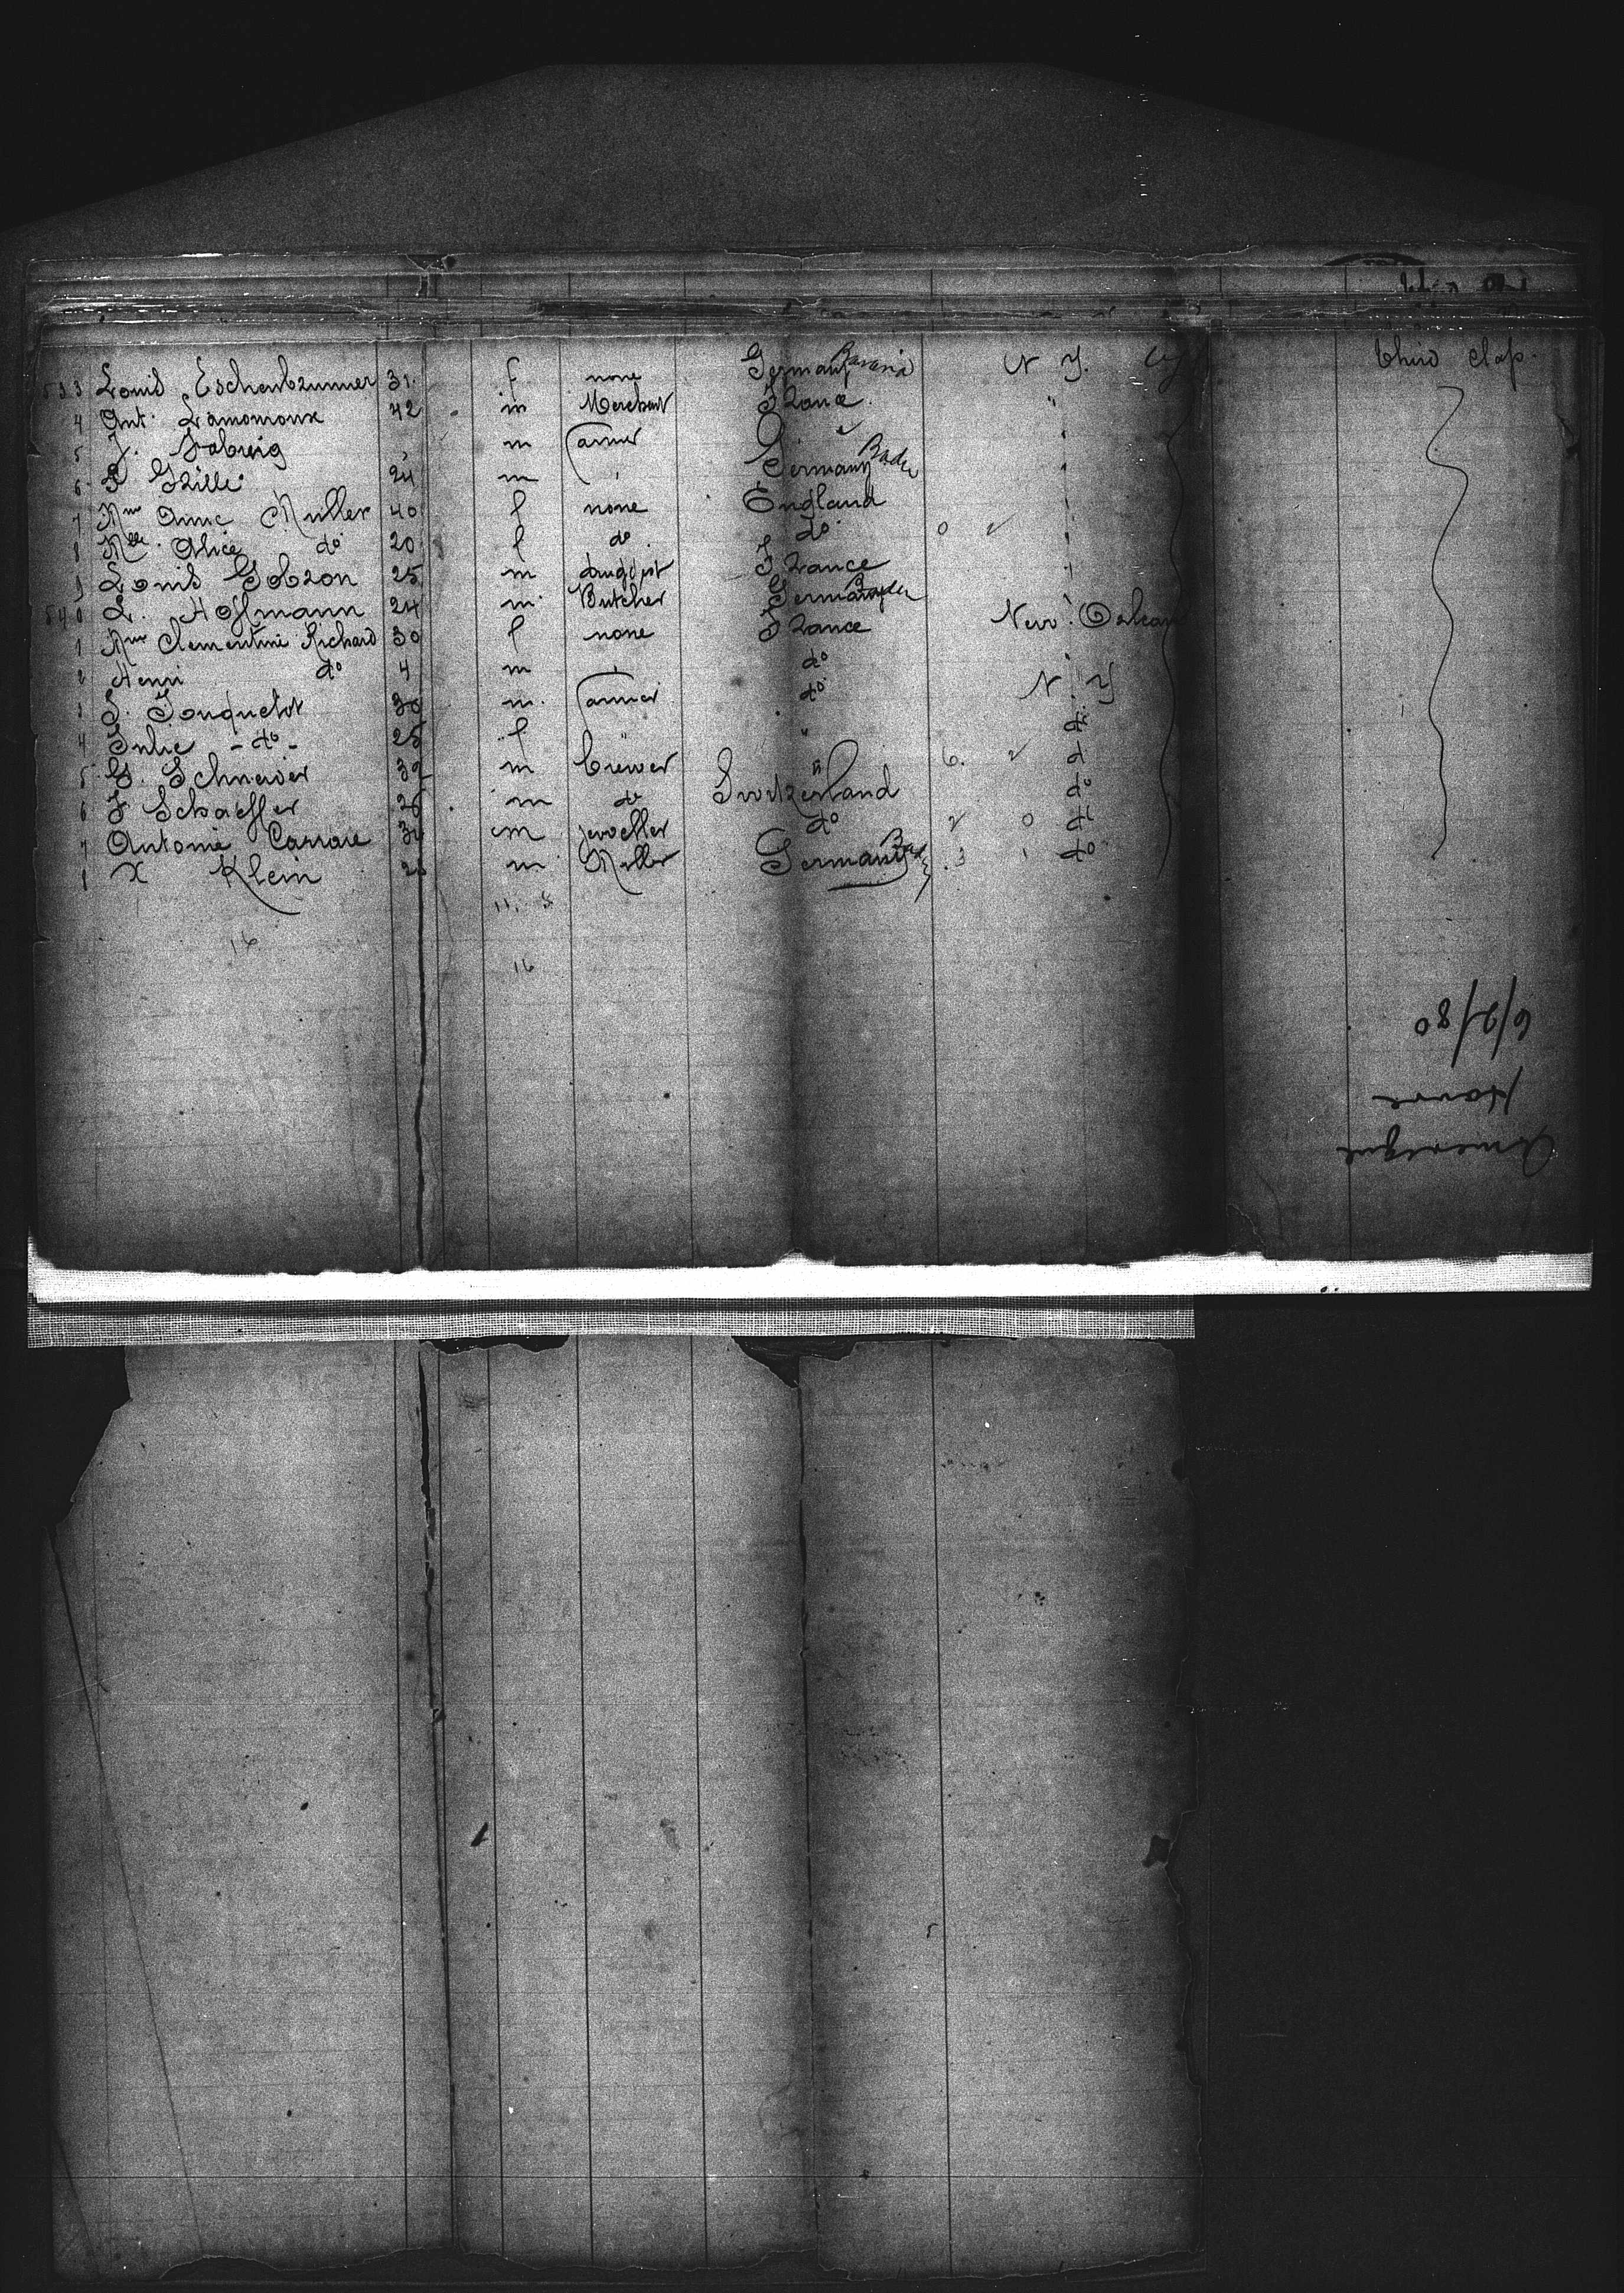 533 Louis Eschenbrunner 31 f none Germany Bavaria N Y. City third class.
4 Ant. Lamouroux 42 m Merchant France "
5 J. m farmer
6 Grille 24 m " Germany Baden "
7 Mme Anna Muller 40 f none England "
8 Mlle Alice do 20 f do do "
9 Louis Gobron 25 m druggist France "
540 L. Hoffmann 24 m Butcher Germany Baden "
1 Mme Clementine Richard 30 f none France New Orleans
2 Henri do 4 m " do "
3 Fouquelet 30 m. farmer do N. Y
4 Julie - do - 25 f " " do
5 G. Schneider 32 m brewer " d
6 J Schaeffer 25 m do Switzerland do
7 Antonie Carrare m jeweller do 2 0 do
8 X Klein m Miller Germany 3 1 do
11. 5
16
16
6/9/80
Havre
Amerique